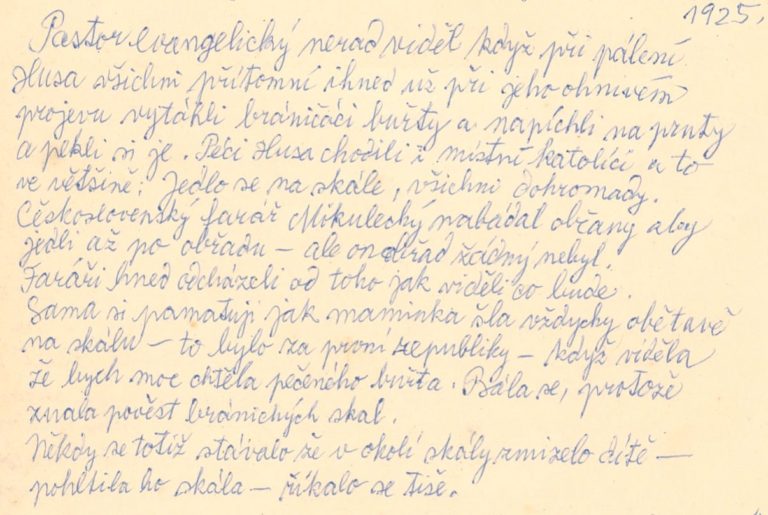 1925.
Pastor evangelický nerad viděl když při pálení
Husa všichni přítomní ihned už při jeho ohnivém
projevu vytáhli bráničáci buřty a napíchli na pruty
a pekli si je. Péci Husa chodili i místní katolíci a to
ve většině: Jedlo se na skále, všichni dohromady.
Československý farář Mikulecký nabádal občany aby
jedli až po obřadu – ale on obřad žádný nebyl.
Faráři hned odcházeli od toho jak viděli co bude.
Sama si pamatuji jak maminka šla vždycky obětavě
na skálu – to bylo za první republiky – když viděla
že bych moc chtěla pečeného buřta. Bála se, protože
znala pověst bránických skal.
Někdy se totiž stávalo že v okolí skály zmizelo dítě –
pohltila ho skála – říkalo se tiše.